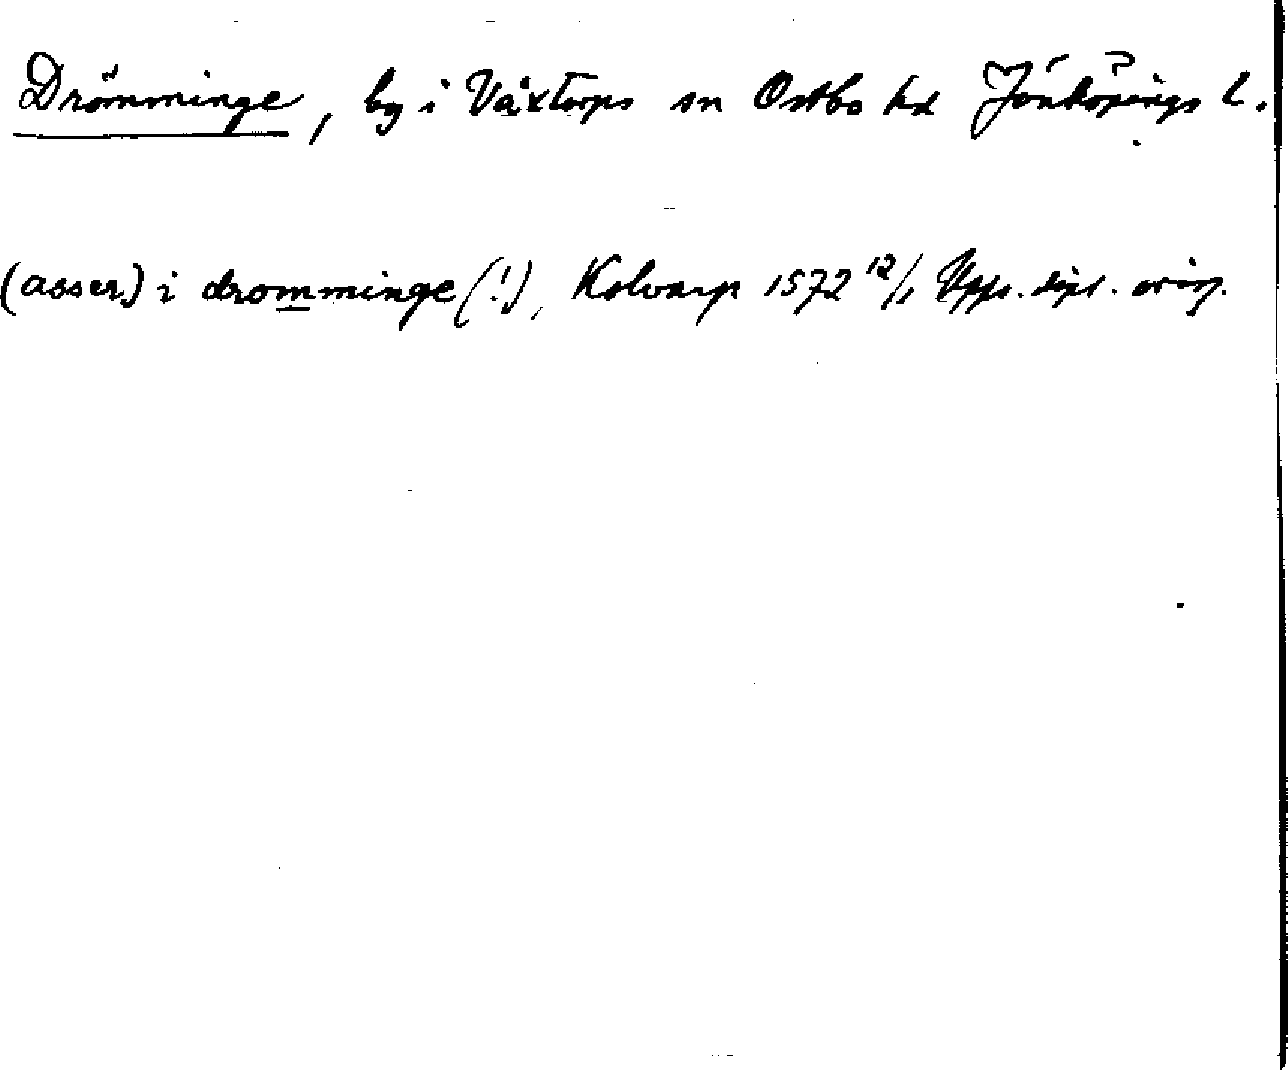 Drömminge, by i Växtorps sn Östbo hd Jönköpings l.
(asser) i dromminge (!), Kolvarp 1572 12/1 Upps. dipl. orig.